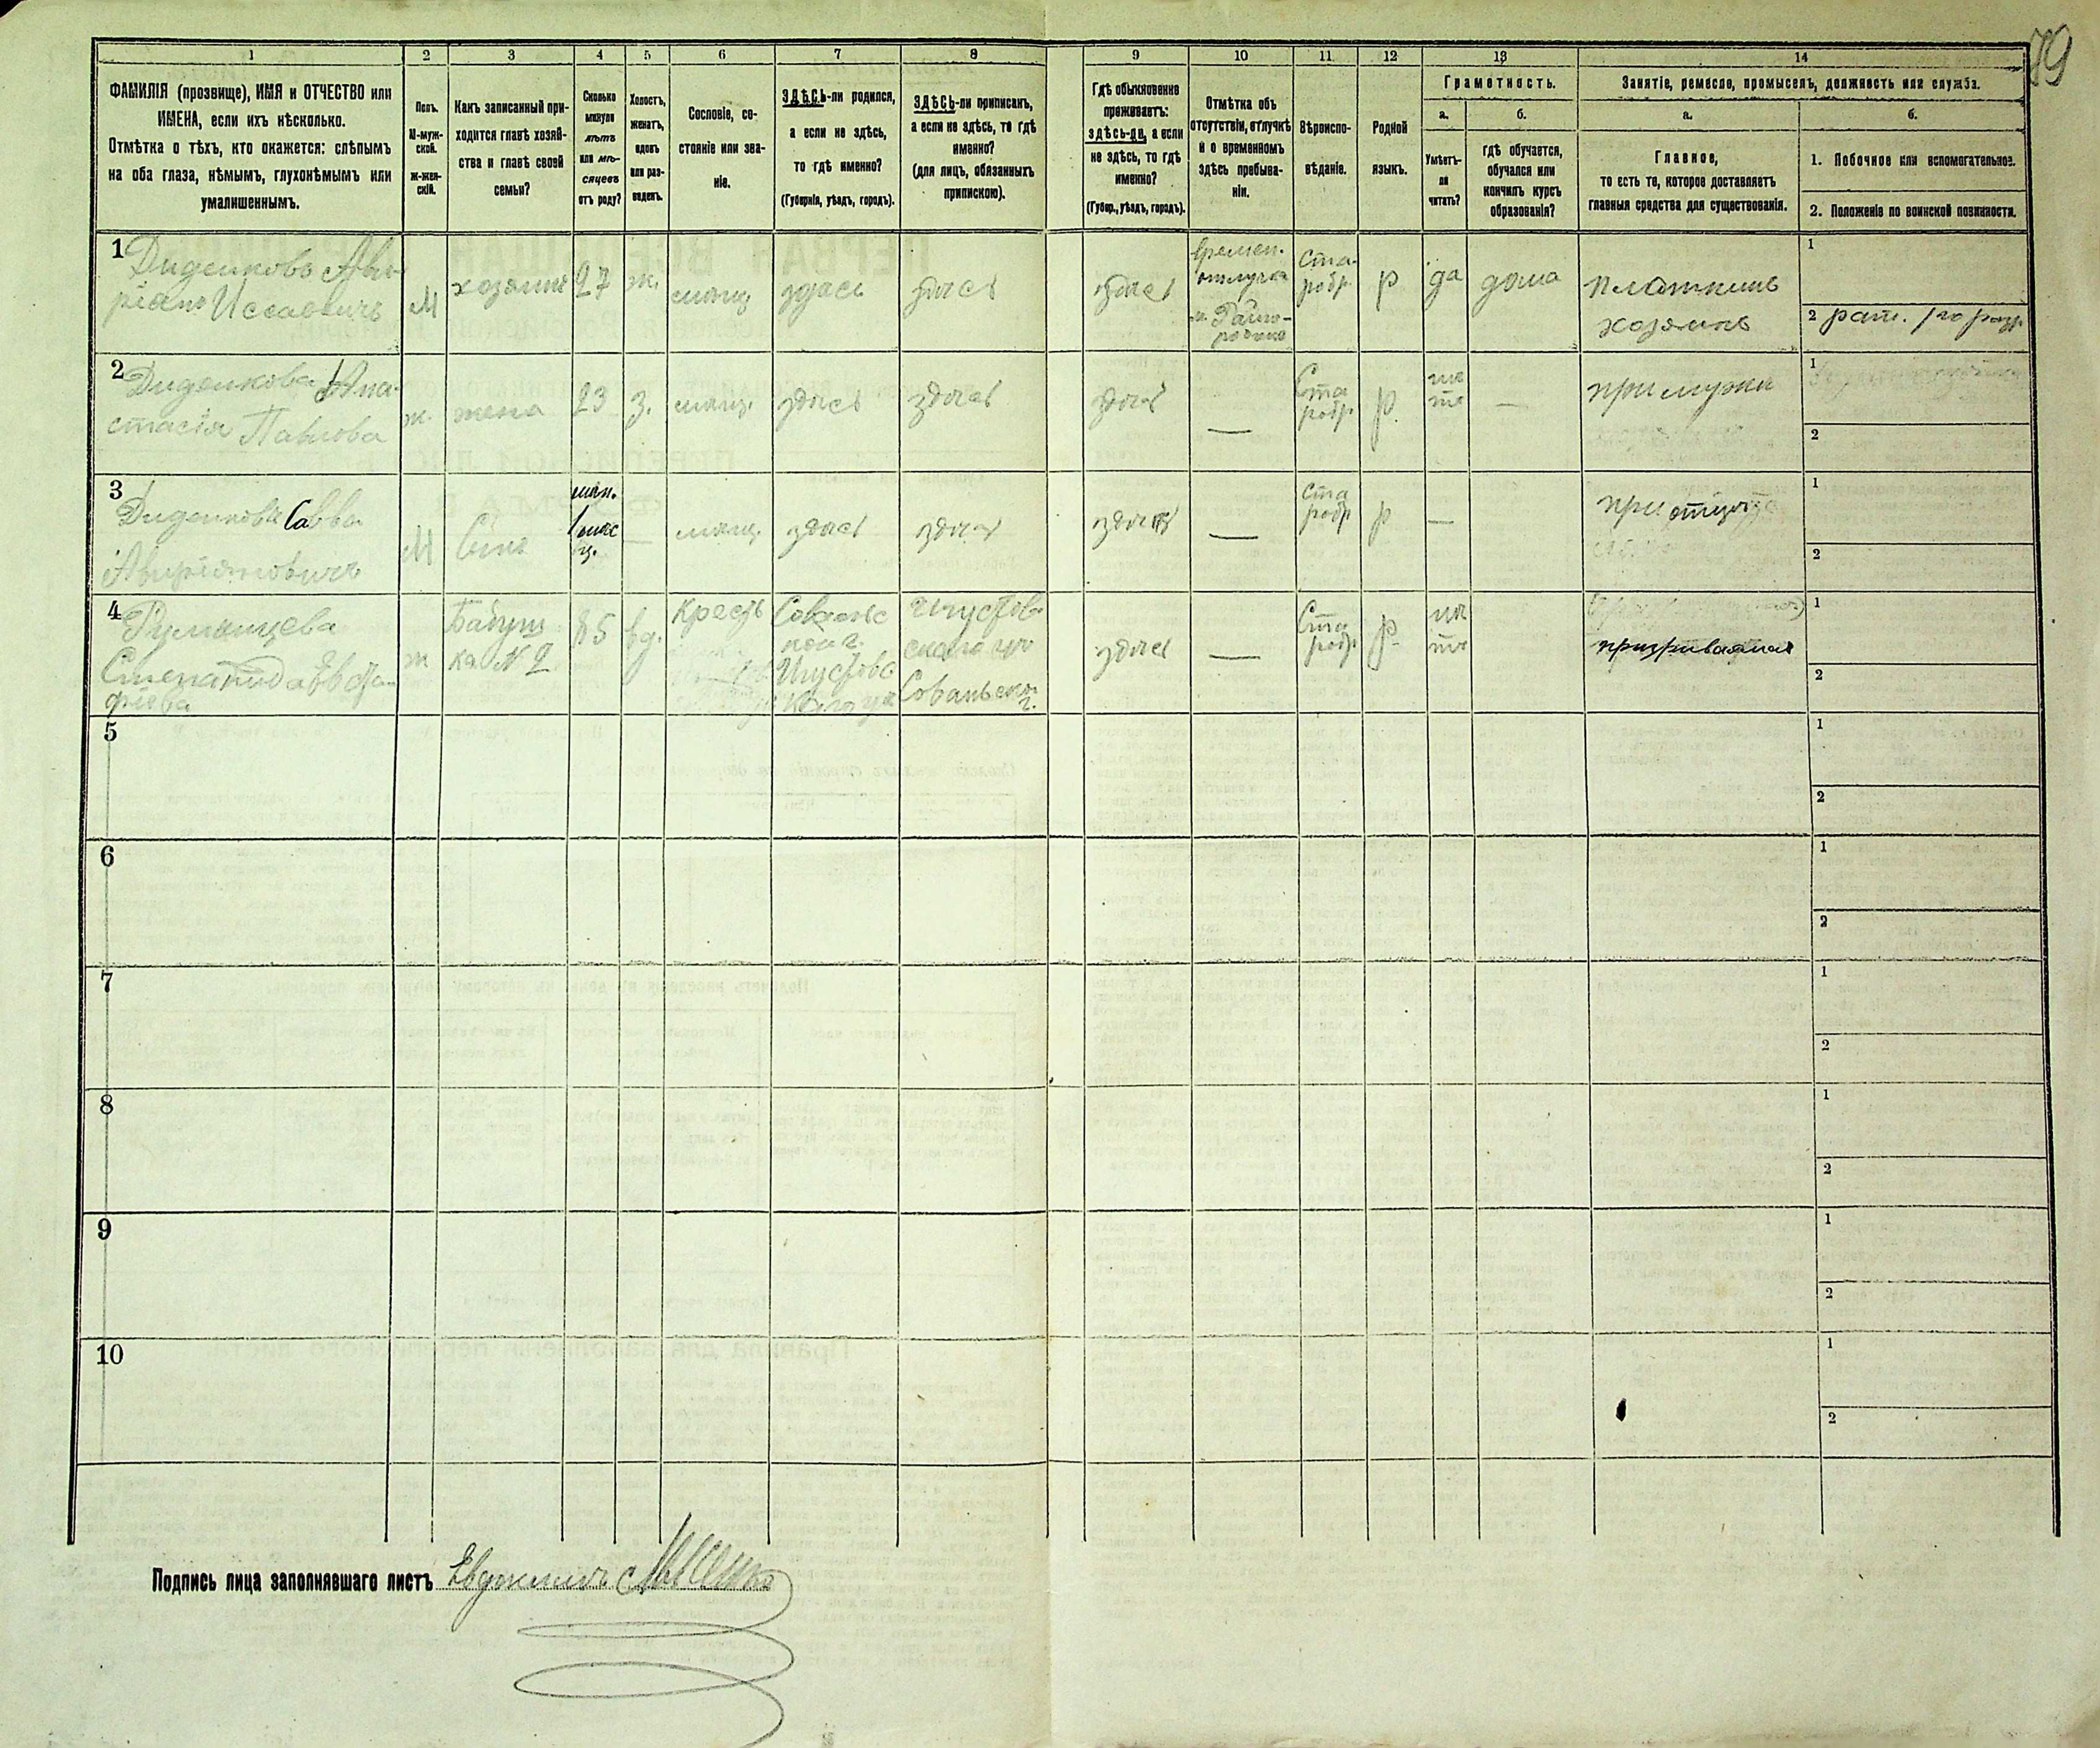 79
1 2 3 4 5 6 7 8 9 10 11 12 13 14
ФАМИЛІЯ (прозвище), ИМЯ и ОТЧЕСТВО или
ИМЕНА, если ихъ нѣсколько.
Отмѣтка о тѣхъ, кто окажется: слѣпымъ
на оба глаза, нѣмымъ, глухонѣмымъ или
умалишеннымъ.
Полъ.
М-муж-
ской.
ж-жен-
скій.
Какъ записанный при-
ходится главѣ хозяй-
ства и главѣ своей
семьи?
Сколько
минуло
лѣтъ
или мѣ-
сяцевъ
отъ роду?
Холостъ,
женатъ,
вдовъ
или раз-
веденъ.
Сословіе, со-
стояніе или зва-
ніе.
ЗДѢСЬ-ли родился,
а если не здѣсь,
то гдѣ именно?
(Губернія, уѣздъ, городъ).
ЗДѢСЬ-ли приписанъ,
а если не здѣсь, то гдѣ
именно?
(для лицъ, обязанныхъ
припискою).
Гдѣ обыкновенно
проживаетъ:
здѣсь-ли, а если
не здѣсь, то гдѣ
именно?
(Губер., уѣздъ, городъ).
Отмѣтка объ
отсутствіи, отлучкѣ
и о временномъ
здѣсь пребыва-
ніи.
Вѣроиспо-
вѣданіе.
Родной
языкъ.
Грамотность.
а.
Умѣетъ-
ли
читать?
б.
гдѣ обучается,
обучался или
кончилъ курсъ
образованія?
Занятіе, ремесло, промыселъ, должность или служба.
а.
Главное,
то есть то, которое доставляетъ
главныя средства для существованія.
б.
1. Побочное или вспомогательное.
2. Положеніе по воинской повинности.
1
Диденковъ Ави-
ріанъ Иссаевичъ
М
хозяинъ
27
ж.
мѣщ
здѣсь
здѣсь
здѣсь
времен.
отлучка
Ста-
робр.
р
да
дома
плотникъ
хозяинъ
1
2 рат. 1го разр.
2
Диденкова Ана-
стасія Павлова
ж.
жена
23
з.
мѣщ.
здѣсь
здѣсь
здѣсь
—
Ста
робр.
р
нѣ
тъ
—
при мужѣ
1
2
3
Диденковъ Савва
Авиріановичъ
М
Сынъ
мен.
1 мѣс
яц.
—
мѣщ.
здѣсь
здѣсь
здѣсь
—
Ста
робр.
р
—
при отцѣ
1
2
4
Румянцева
Степанида Евста-
фіева
ж
Бабуш
ка № 2
85
вд.
крест
здѣсь
—
Ста
робр.
р.
нѣ
тъ
призрѣваемая
1
2
5
1
2
6
1
2
7
1
2
8
1
2
9
1
2
10
1
2
Подпись лица заполнявшаго листъ